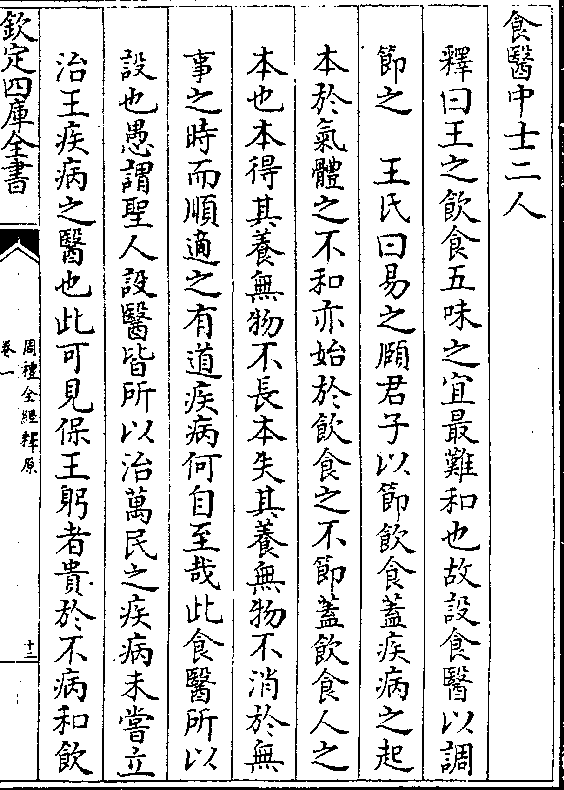 食醫中士二人
釋曰王之飲食五味之宜最難和也故設食醫以調
節之　王氏曰易之頤君子以節飲食蓋疾病之起
本於氣體之不和亦始於飲食之不節蓋飲食人之
本也本得其養無物不長本失其養無物不消於無
事之時而順適之有道疾病何自至哉此食醫所以
設也愚謂聖人設醫皆所以治萬民之疾病未嘗立
治王疾病之醫也此可見保王躬者貴於不病和飲
欽定四庫全書
周禮全經釋原
卷一
十三